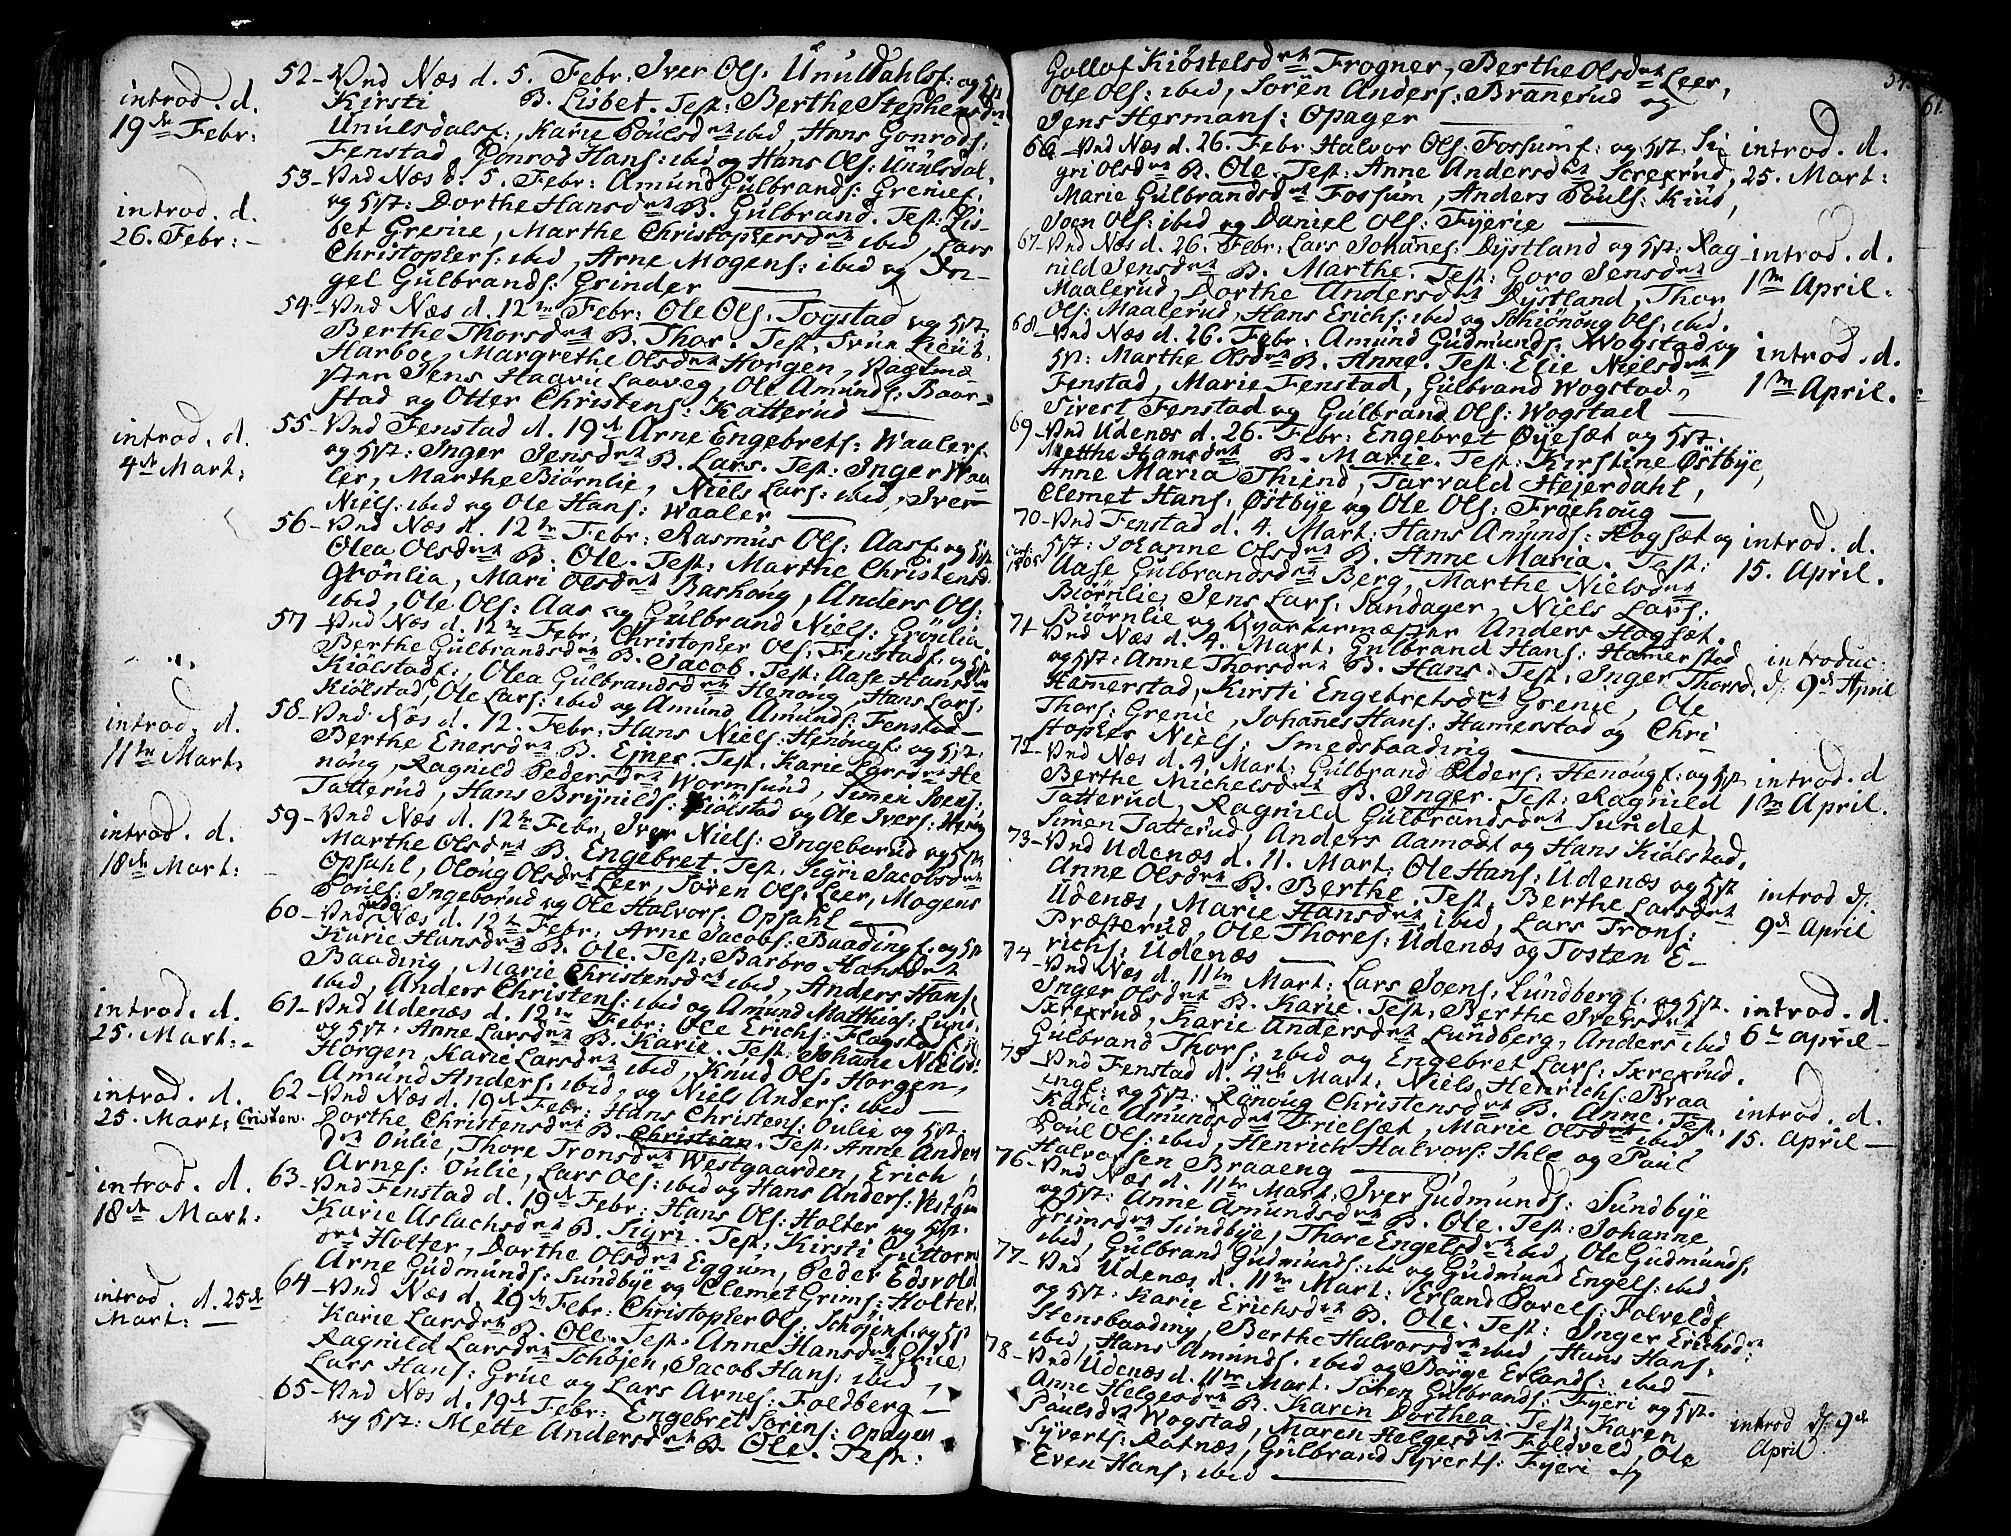 introd. d.
19de Febr:
52 – Und Næs d. 5. Febr. Iver Ols. Unulsdahlsf: og Hst
Kirsti B. Lisbet. Test: Berthe Stephensd
Unulsdalsf:, Karie Poulsdrt ibid, Hans Gonrods:
Fenstad, Gonrod Hans: ibid og Hans Ols: Unulsdal.
introd. d.
26. Febr: –
53 – Und Næs d. 5. Febr: Amund Gulbrands: Greniet.
og Hst: Dorthe Hansdrt B. Gulbrand. Test: Lis-
bet Grenie, Marthe Christophersdrt ibid, Lars
Christophers: ibid, Arne Mogens: ibid og In-
gel Gulbrands: Grinder
54 – Und Næs d. 12te Febr: Ole Ols: Togstad og Hst.
Berthe Thorsdrt B. Thor. Test:
Harboe, Margrethe Olsdrt Horgen,
Jens Haavie Laaveg, Ole Amunds: Baar-
stad og Otter Christens: Katterud
introd. d.
4de Mart:
55 – Und Fenstad d. 19de Arne Engebrets: Waalerf.
og Hst: Inger Jensdrt B. Lars. Test: Inger Waa
ler, Marthe Biørnlie, Niels Lars: ibid, Iver
Niels: ibid og Ole Hans: Waaler
56 – Und Næs d. 12te Febr: Rasmus Ols: Aasf. og Hst
Olea Olsdrt B. Ole. Test: Marthe Christensd.
Grønlia, Mari Olsdrt Barhoug, Anders Ols:
ibid, Ole Ols: Aas og Gulbrand Niels: Grønlia.
57 – Und Næs d. 12te Febr: Christopher Ols: Fenstadf. og Hst
Berthe Gulbrandsdrt B. Jacob. Test: Aase Hansdrt
Kiølstadf:, Olea Gulbrandsdrt Henoug, Hans Lars:
Kiølstad, Ole Lars: ibid og Amund Amunds: Fenstad –
introd. d.
11te Mart:
58 – Und Næs d. 12. Febr: Hans Niels: Henougf. og Hst.
Berthe Enersdrt B. Ejner. Test. Karie Larsdrt He
noug, Ragnild Pedersdrt Wormsund, Simen Joens:
Tatterud, Hans Brynilds: Kiølstad og Ole Ivers: Henoug
introd. d.
18de Mart:
59 – Und Næs d. 12te Febr. Iver Niels: Ingeborud og Hst
Marthe Olsdrt B. Engebret. Test. Sigri Jacobsdrt
Opsahl, Oloug Olsdrt Leer, Søren Ols: Leer, Mogens
Pouls: Ingeborud og Ole Halvors: Opsahl
60 – Und Næs d. 12te Febr: Arne Jacobs: Baadingf. og Hst
Karie Hansdrt B. Ole. Test: Barbro Hansdrt
Baading, Marie Christensdrt ibid, Anders Hans:
ibid, Anders Christens: ibid og Amund Matthias:
introd. d.
25. Mart: –
61 – Und Udenæs d. 12te Febr: Ole Erichs: Hagstad
og Hst: Anne Larsdrt B. Karie. Test: Johane Nielsd:
Horgen, Karie Larsdrt ibid, Knud Ols: Horgen,
Amund Anders: ibid, og Niels Anders: ibid –
introd. d.
25. Mart: Cristen.
62 – Und Næs d. 19de Febr: Hans Christens: Oulie og Hst:
Dorthe Christensdrt B. Christian. Test: Anne Anders
drt Oulie, Thore Tronsdrt Westgaarden, Erich
Arnes: Oulie, Lars Ols: ibid og Hans Anders: Vestgaa
introd. d.
18de Mart:
63 – Und Fenstad d. 19de Febr: Hans Ols: Holter og Hst.
Karie Aslachsdrt B. Sigri. Test: Kirsti Guttorms
drt Holter, Dorthe Olsdrt Eggum, Peder Edsvold
Arne Gudmunds: Sundbye og Clemet Grims: Holter,
introd. d. 25de
Mart: –
64 – Und Næs d. 19de Febr: Christopher Ols: Schøjenf. og Hst
Karie Larsdrt B. Ole. Test: Anne Hansdrt Grue,
Ragnild Larsdrt Schøjen, Jacob Hans: ibid,
Lars Hans: Grue og Lars Arnes: Foldberg –
65 – Und Næs d. 19de Febr: Engebret Sørens: Opager
og Hst: Mette Andersdrt B. Ole. Test:
54. 61.
Gollof Kiøstelsdrt Frogner, Berthe Olsdrt Leer,
Ole Ols: ibid, Søren Anders: Branerud og
Jens Hermans: Opager
66 – Und Næs d. 26. Febr Halvor Ols: Fossumf: og Hst. Si
gri Olsdrt B. Ole. Test: Anne Andersdrt Screxrud,
Marie Gulbrandsdrt Fossum, Anders Pouls: Kius,
Joen Ols: ibid og Daniel Ols: Fyerie
introd. d.
25. Mart:
67 – Und Næs d. 26. Febr: Lars Johanes: Dystland og Hst: Rag
nild Jensdrt B. Marthe. Test: Goro Jensdrt
Maalerud, Dorthe Andersdrt Dystland, Thor
Ols: Maalerud, Hans Erichs: ibid og Schiønoug Ols: ibid.
introd. d.
1ste April.
68 – Und Næs d. 26. Febr: Amund Gudmunds: Wogstad og
Hst: Marthe Olsdrt B. Anne. Test. Elie Nielsdrt
Fenstad, Marie Fenstad, Gulbrand Wogstad,
Sivert Fenstad og Gulbrand Ols: Wogstad –
introd. d.
1ste April.
69 – Und Udenæs d. 26. Febr: Engebret Øyesæt og Hst.
Mætthe Hansdrt B. Marie. Test: Kirstine Østbye,
Anne Maria Thiend, Tarvald Hejerdahl,
Clemet Hans: Østbye og Ole Ols: Fræhoug –
70 – Und Fenstad d. 4. Mart: Hans Amunds: Hogsæt og
Hst: Johanne Olsdrt B. Anne Maria. Test:
Aase Gulbrandsdrt Berg, Marthe Nielsdrt
Biørnlie, Jens Lars: Sandager, Niels Lars:
Biørnlie og Qvartermæster Anders Hogsæt.
introd. d.
15. April.
71 – Und Næs d. 4. Mart: Gulbrand Hans: Hamerstad
og Hst: Anne Thorsdrt B. Hans. Test: Inger Thorsd.
Hamerstad, Kirsti Engebretsdrt Grenie, Ole
Thors: Grenie, Johannes Hans: Hamerstad og Chri-
stopher Niels: Smedsbaading
introduc:
d: 9de April
72 – Und Næs d. 4. Mart: Gulbrand Peders: Henougf: og Hst
Berthe Michelsdrt B. Inger. Test: Ragnild
Tatterud, Ragnild Gulbrandsdrt Sundet,
Simen Tatterud, Anders Aamodt og Hans Kiølstad.
introd. d
1ste April.
73 – Und Udenæs d. 11. Mart: Ole Hans: Udenæs og Hst
Anne Olsdrt B. Berthe. Test: Berthe Larsdrt
Udenæs, Marie Hansdrt ibid, Lars Trons:
Præsterud, Ole Thores: Udenæs og Tosten E-
richs: Udenæs
introd d:
9de April
74 – Und Næs d. 11te Mart: Lars Joens: Lundbergf. og Hst.
Inger Olsdrt B. Karie. Test: Berthe Iversdrt
Screxrud, Karie Andersdrt Lundberg, Anders ibid
Gulbrand Thors: ibid og Engebret Lars: Screxrud.
introd. d.
6te April –
75 – Und Fenstad d. 4de Mart: Niels Henrichs: Braa
engf: og Hst: Ranoug Christensdrt B. Anne. Test.
Karie Amundsdrt Frielsæt, Marie Olsdrt ibid
Poul Ols: ibid, Henrich Halvors: Ihle og Paul
Halvorsen Braaeng
introd. d.
15. April –
76 – Und Næs d. 11te Mart: Iver Gudmunds: Sundbye
og Hst: Anne Amundsdrt B. Ole. Test: Johanne
Grimsdrt Sundbye, Thore Engelsdrt ibid, Ole Gudmunds:
ibid, Gulbrand Gudmunds: ibi og Gudmund Engels: ibid.
77 – Und Udenæs d. 11te Mart: Erland Povels: Folveldf
og Hst: Karie Erichsdrt B. Ole. Test: Inger Erichsdrt
Stensbaading, Berthe Halvorsdrt ibid, Hans Hans:
ibid, Hans Amunds: ibid og Børge Erlands: ibid –
78 – Und Udenæs d. 11te Mart. Søren Gulbrands: Fyeri og Hst.
Anne Helgesdrt B. Karen Dorthea. Test: Karen
Paulsdrt Wogstad, Maren Helgesdrt Foldveld, Ole
Syverts: Ratnæs, Gulbrand Syverts: Fyeri og
Even Hans: ibid
introd d: 9de
April.